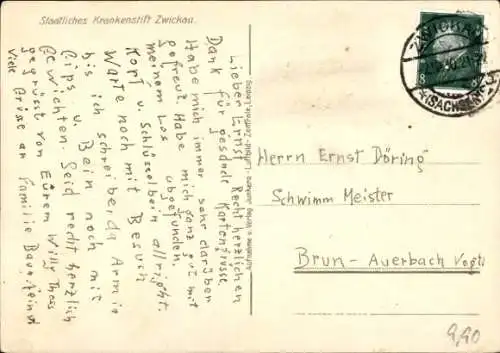 Staatliches Krankenstift Zwickau.
Lieber Ernst Recht herzlichen
Dank für gesande Kartengrüsse
Habe mich immer sehr darüber
gefreut. Habe mich ganz gut mit
meinem Los abgefunden.
Kort u. Schlüsselbein allright.
Warte noch mit Besuch
bis ich schreibe, da Arm in
Gips u. Bein noch mit
Gewichten. Seid recht herzlich
gegrüsst von Eurem Willy
Viele Grüsse an Familie
ZWICKAU
(SACHSEN)
8
Herrn Ernst Döring
Schwimm Meister
Brun-Auerbach Vogtl
9,90